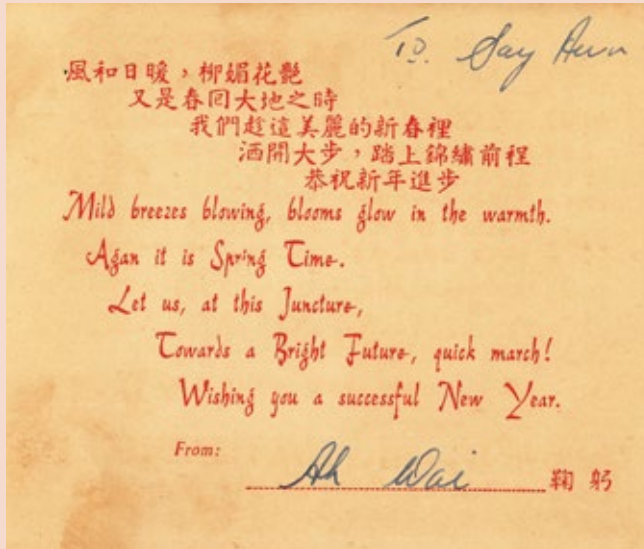 To. Say Aun
風和日暖，柳媚花艷
又是春回大地之時
我們趁這美麗的新春裡
洒開大步，踏上錦繡前程
恭祝新年進步
Mild breezes blowing, blooms glow in the warmth.
Agan it is Spring Time.
Let us, at this Juncture,
Towards a Bright Future, quick march!
Wishing you a successful New Year.
From: Ah Wai 鞠躬